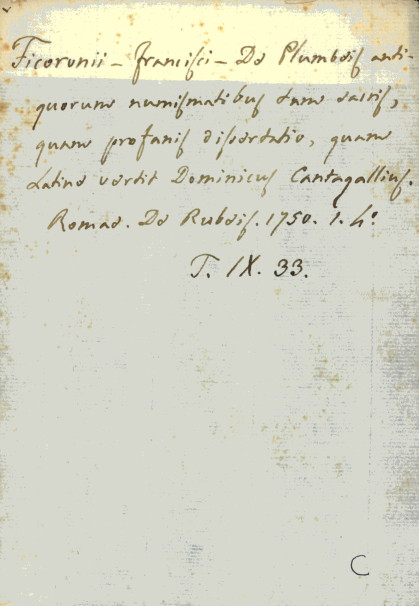 Ficoronii - Francisci - De Plumbeis anti-
quorum numismatibus tam sacris,
quam profanis dissertatio, quam
Latine vertit Dominicus Cantagallius.
Romae. De Rubeis. 1750. 1. 4°
T. IX. 33.
C